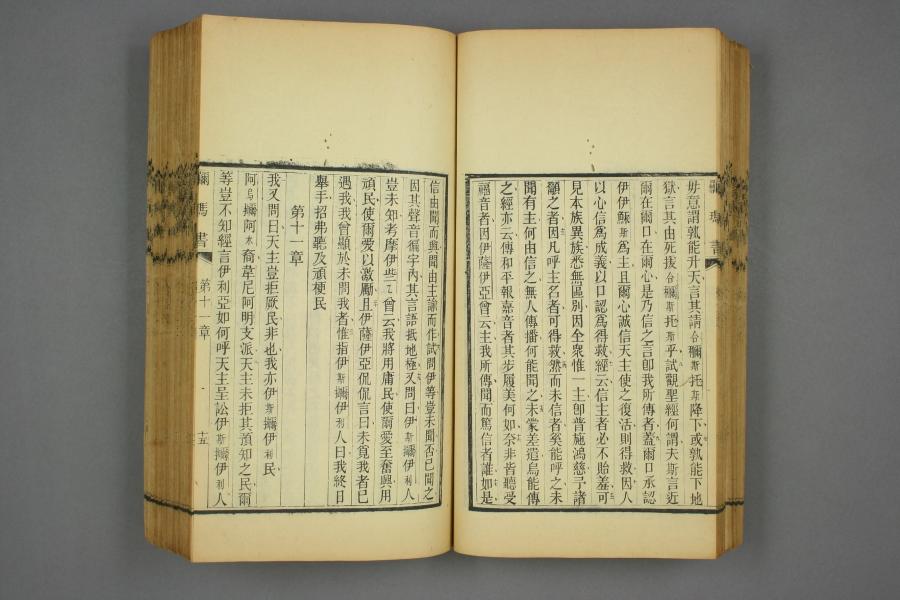 毋意謂孰能升天言其請合爾斯托斯降下或孰能下地
獄言其由死拔合爾斯托斯乎試觀聖經何謂夫斯言近
爾在爾口在爾心是乃信之言卽我所傳者蓋爾口承認
伊伊穌斯爲主且爾心誠信天主使之復活則得救因人
以心信爲成義以口認爲得救經云信主者必不貽羞可
見本族異族悉無區別因全衆惟一主卽普施鴻慈予諸
龥之者因凡呼主名者可得救然而未信者奚能呼之未
聞有主何由信之無人傳播何能聞之未蒙差遣烏能傳
之經亦云傳和平報嘉音者其步履美何如奈非皆聽受
福音者因伊薩伊亞曾云主我所傳聞而篤信者誰如是
信由聞而興聞由主諭而作試問伊等豈未聞否已聞之
因其聲音徧宇內其言語抵地極又問曰伊斯擿伊利人
豈未知考摩伊些乙曾云我將用庸民使爾愛至奮興用
頑民使爾愛以激勵且伊薩伊亞侃侃言曰未覓我者已
遇我我曾顯於未問我者惟指伊斯擿伊利人曰我終日
舉手招弗聽及頑梗民
第十一章
我又問曰天主豈拒厥民非也我亦伊斯擿伊利民
阿烏擿阿木裔韋尼阿明支派天主未拒其預知之民爾
等豈不知經言伊利亞如何呼天主呈訟伊斯擿伊利人
爾瑪書
第十一章
十五